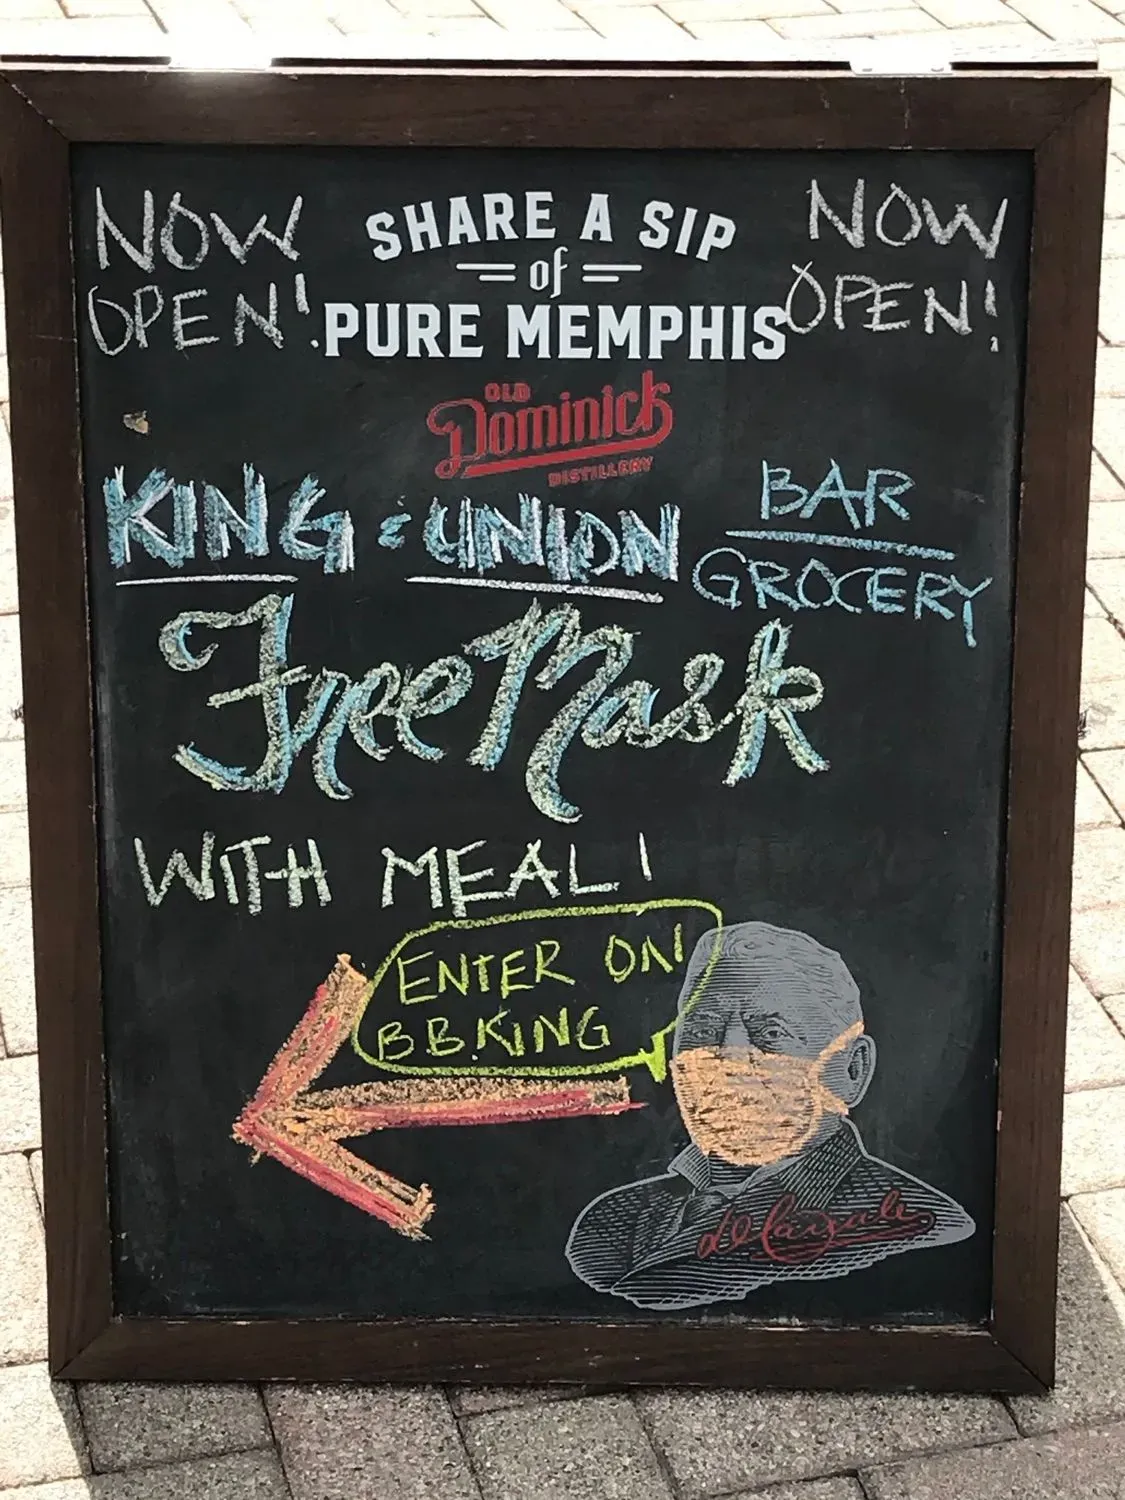 NOW OPEN!
SHARE A SIP
of
PURE MEMPHIS
NOW OPEN!
OLD
Dominick
DISTILLERY
KING & UNION BAR
GROCERY
Free Mask
WITH MEAL!
ENTER ON
B.B.KING